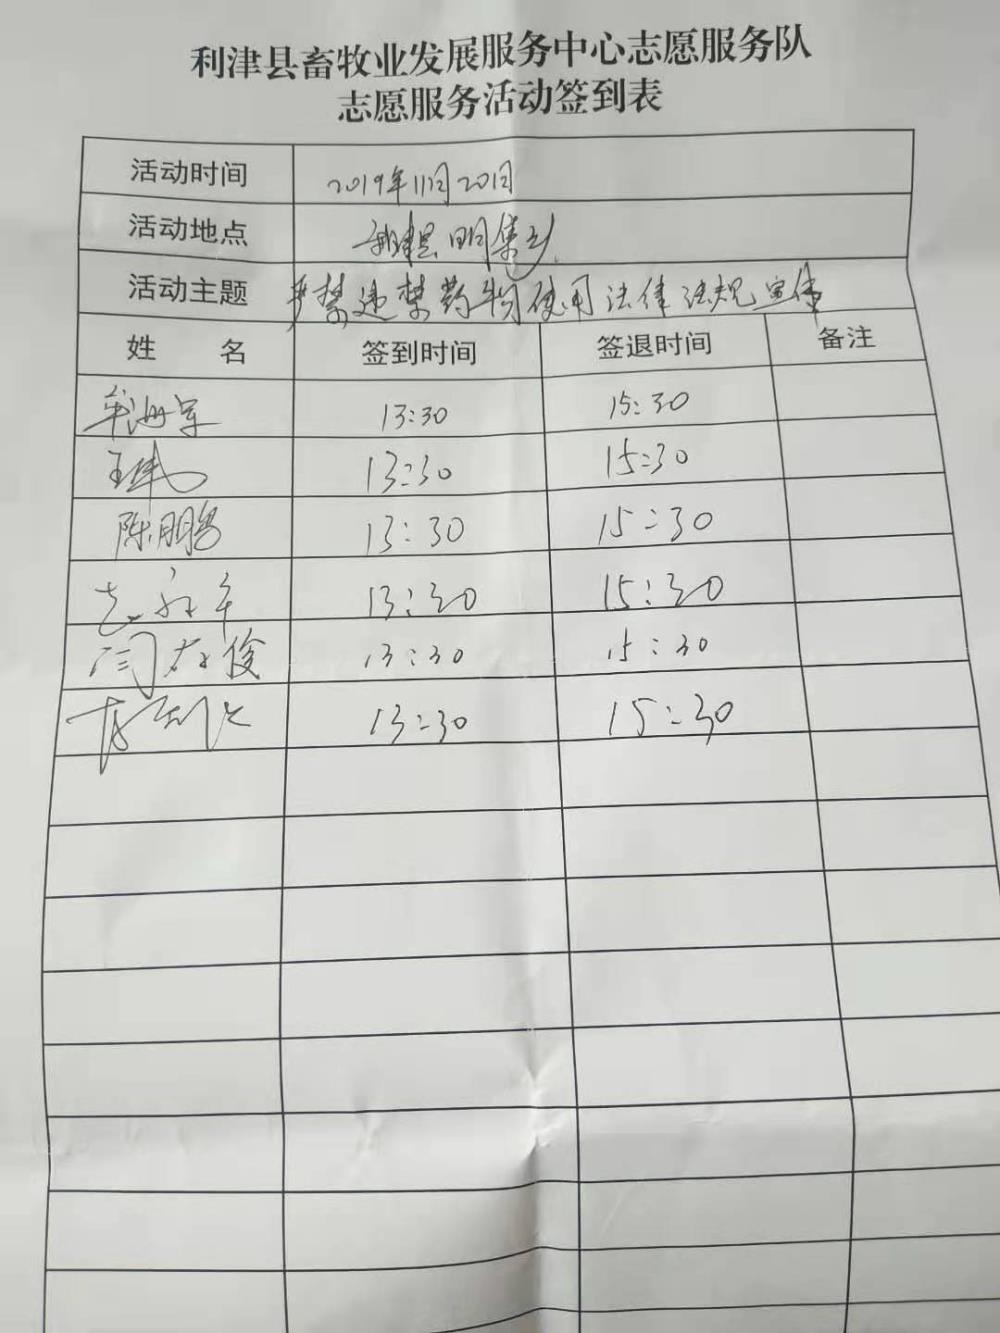 利津县畜牧业发展服务中心志愿服务队
志愿服务活动签到表
活动时间 2019年11月20日
活动地点 利津县明集乡
活动主题 严禁违禁药物使用法律法规宣传
姓 名 签到时间 签退时间 备注
13:30 15:30
王伟 13:30 15:30
陈鹏 13:30 15:30
13:30 15:30
闫 俊 13:30 15:30
13:30 15:30